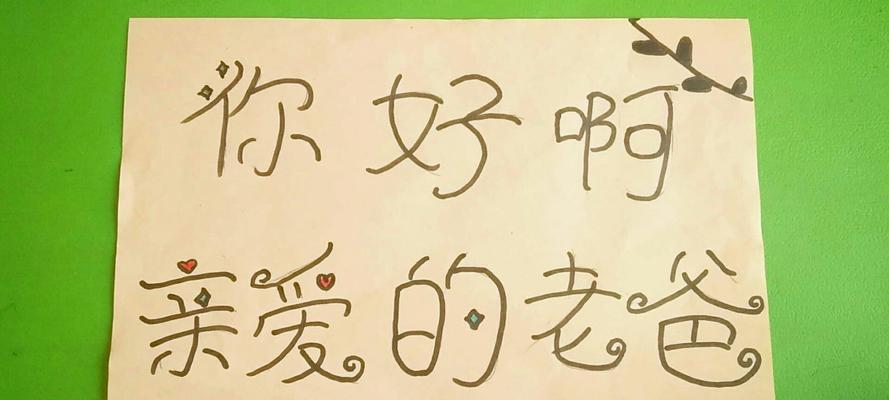 你好啊
亲爱的老爸